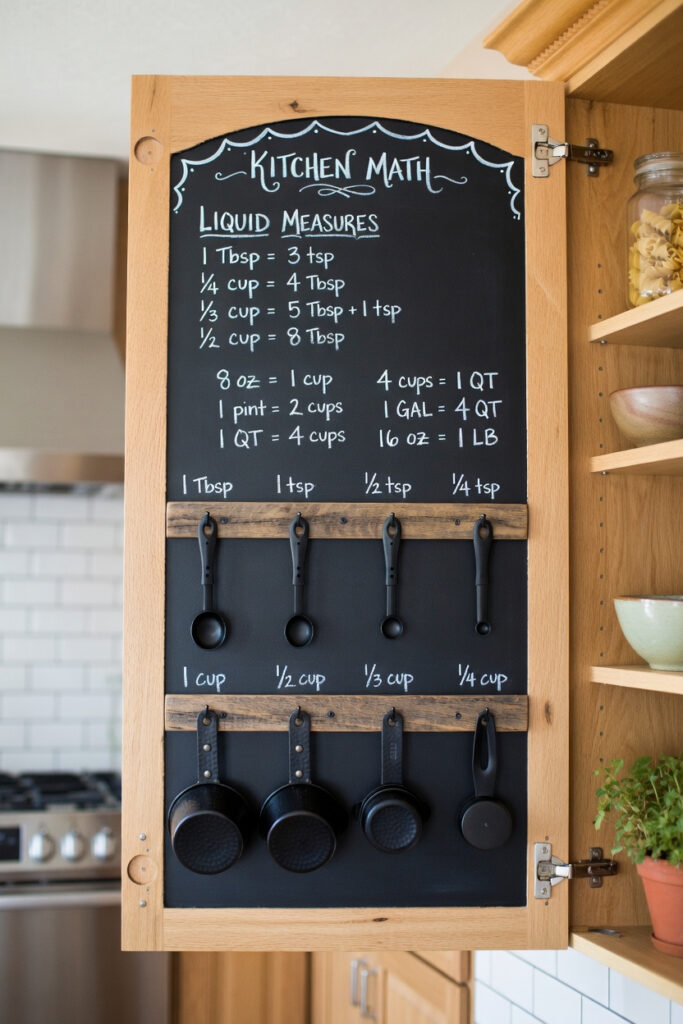 KITCHEN MATH
LIQUID MEASURES
1 Tbsp = 3 tsp
1/4 cup = 4 Tbsp
1/3 cup = 5 Tbsp + 1 tsp
1/2 cup = 8 Tbsp
8 oz = 1 cup
1 pint = 2 cups
1 QT = 4 cups
4 cups = 1 QT
1 GAL = 4 QT
16 oz = 1 LB
1 Tbsp 1 tsp 1/2 tsp 1/4 tsp
1 cup 1/2 cup 1/3 cup 1/4 cup